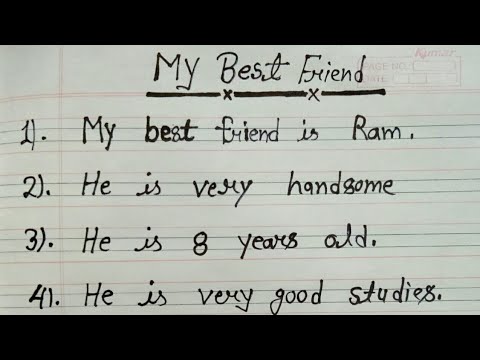 Kumar
PAGE NO.:
DATE:
My Best Friend
1). My best friend is Ram.
2). He is very handsome
3). He is 8 years old.
4). He is very good studies.